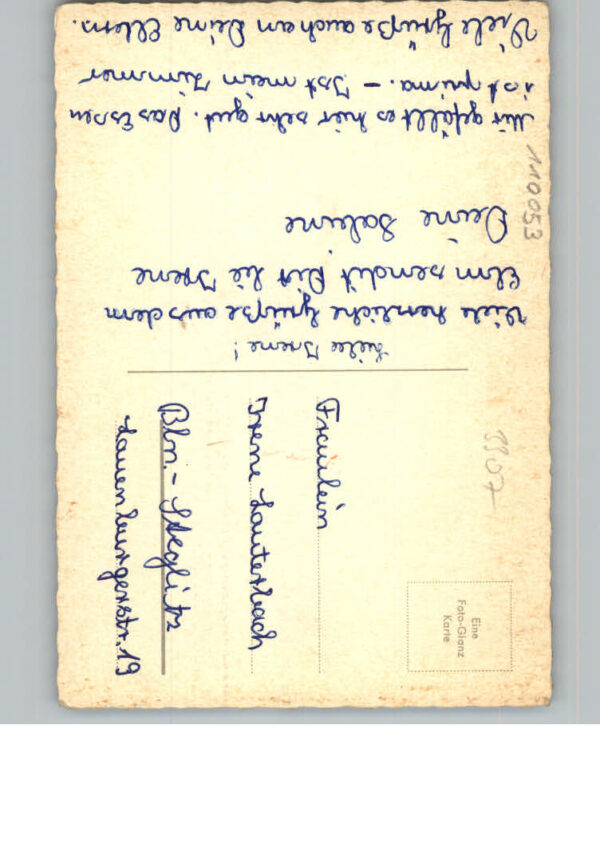 Liebe Irene!
Viele herzliche Grüße aus dem
Elm sendet Dir Irene
Deine Sabine
Mir gefällt es hier sehr gut. Das Essen
ist prima. – Ist mein Zimmer
Viele Grüße auch an Deine Eltern.
110053
3307
Eine
Foto-Glanz
Karte
Fräulein
Irene Lauterbach
Bln.- Steglitz
Lauenburgerstr. 19